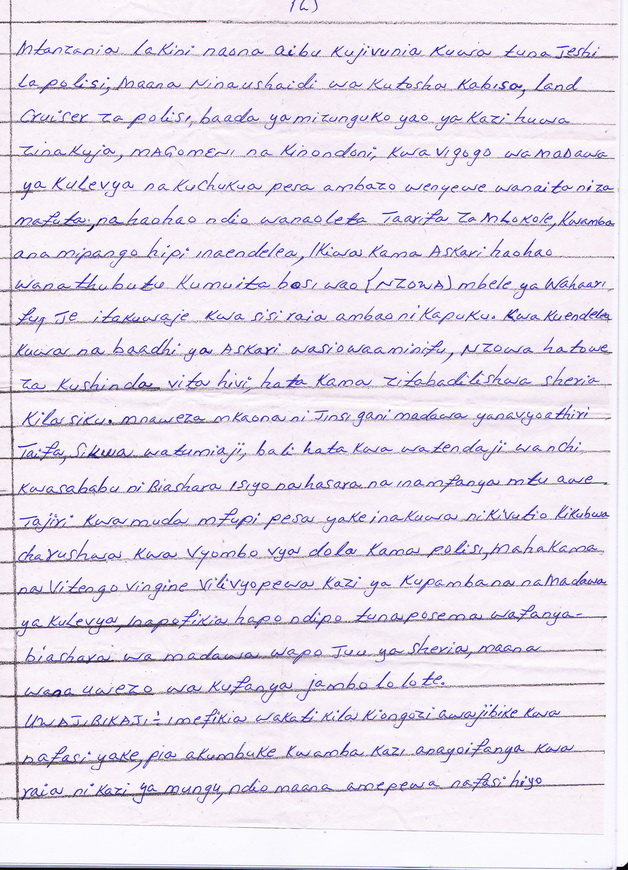 (2)
Mtanzania lakini naona aibu kujivunia kuwa tuna Jeshi
la polisi, Maana Ninaushaidi wa Kutosha Kabisa, land
Cruiser za polisi, baada ya mizunguko yao ya Kazi huwa
zinakuja, MAGOMENI na Kinondoni, kwa vigogo wa MaDawa
ya Kulevya na Kuchukua pesa ambazo wenyewe wanaita ni za
mafuta, na haohao ndio wanaoleta Taarifa za Mlokole, Kwamba
ana mipango hipi inaendelea, Ikiwa Kama Askari haohao
wanathubutu Kumuita bosi wao (NZOWA) mbele ya Wahaari
fu, Je itakuwaje Kwa sisi raia ambao ni Kapuku. Kwa Kuendelea
Kuwa na baadhi ya Askari wasiowaaminifu, NZowa hatowe
za Kushinda vita hivi, hata Kama zitabadilishwa sheria
Kila siku. mnaweza mkaona ni Jinsi gani madawa yanavyoathiri
Taifa, Sikwa watumiaji, bali hata Kwa watendaji wanchi
Kwasababu ni Biashara isiyo na hasara na inamfanya mtu awe
Tajiri Kwa muda mfupi pesa yake inakuwa ni Kivutio Kikubwa
cha rushwa Kwa vyombo vya dola Kama polisi, Mahakama
na Vitengo vingine Vilivyopewa Kazi ya Kupambana na Madawa
ya Kulevya, Inapofikia hapo ndipo tunaposema wafanya-
biashara wa madawa wapo Juu ya sheria, maana
wana uwezo wa Kufanya jambo lo lote.
UWAJIBIKAJI:- imefikia wakati Kila Kiongozi awajibike Kwa
nafasi yake, pia akumbuke Kwamba Kazi anayoifanya Kwa
raia ni Kazi ya mungu, ndio maana amepewa nafasi hiyo